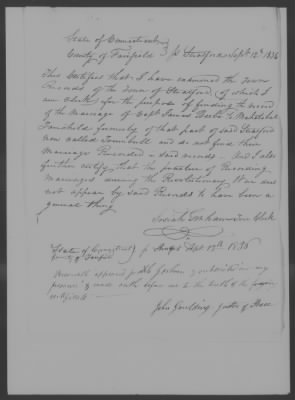 State of Connecticut
County of Fairfield } ss Stratford Sept 12th 1836
This Certifies that I have examined the Town
Records of the Town of Stratford, (of which I
am Clerk) for the purpose of finding the record
of the Marriage of Capt James to
Fairchild formerly of that part of said Stratford
now called Trumbull and do not find their
Marriage Recorded in said records. And I also
further certify that the practice of Recording
marriages during the Revolutionary War does
not appear by said Records to have been a
general thing
Josiah Clerk
State of Connecticut
County of Fairfield } ss Sept 12th 1836
appeared & subscribed in my
presence & made oath before me to the truth of the foregoing
certificate
John Goulding Justice of Peace